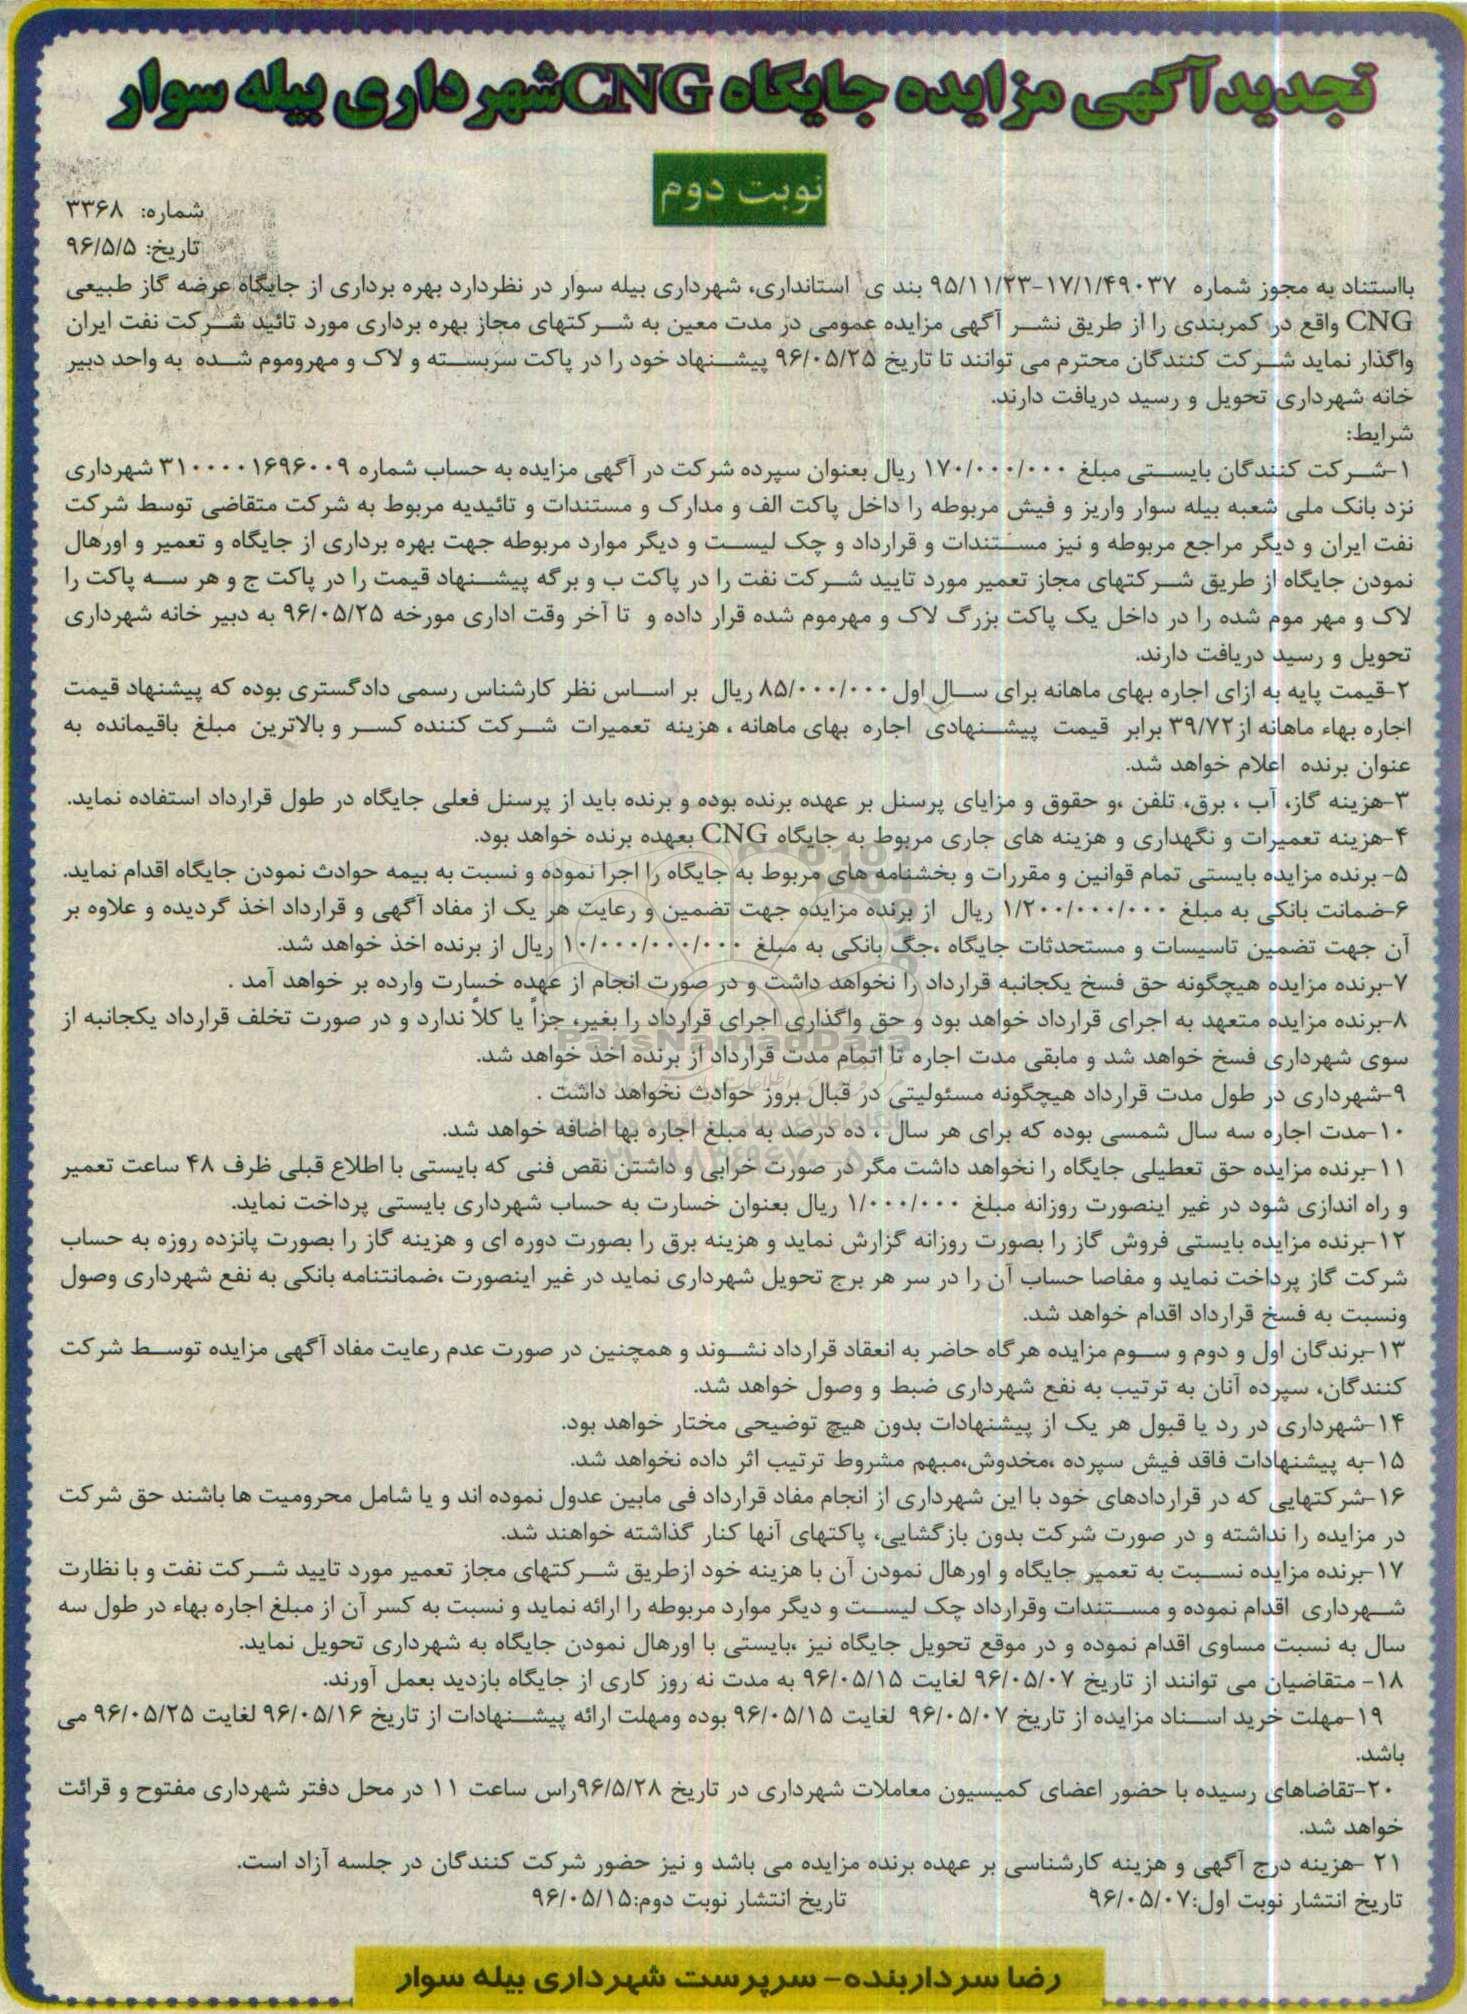 تجدید آگهی مزایده جایگاه CNG شهرداری بیله سوار
نوبت دوم
شماره: ۳۳۶۸
تاریخ: ۹۶/۵/۵
بااستناد به مجوز شماره ۱۷/۱/۴۹۰۳۷-۹۵/۱۱/۲۳ بند ی استانداری، شهرداری بیله سوار در نظردارد بهره برداری از جایگاه عرضه گاز طبیعی
CNG واقع در کمربندی را از طریق نشر آگهی مزایده عمومی در مدت معین به شرکتهای مجاز بهره برداری مورد تائید شرکت نفت ایران
واگذار نماید شرکت کنندگان محترم می توانند تا تاریخ ۹۶/۰۵/۲۵ پیشنهاد خود را در پاکت سربسته و لاک و مهروموم شده به واحد دبیر
خانه شهرداری تحویل و رسید دریافت دارند.
شرایط:
۱-شرکت کنندگان بایستی مبلغ ۱۷۰/۰۰۰/۰۰۰ ریال بعنوان سپرده شرکت در آگهی مزایده به حساب شماره ۳۱۰۰۰۰۱۶۹۶۰۰۹ شهرداری
نزد بانک ملی شعبه بیله سوار واریز و فیش مربوطه را داخل پاکت الف و مدارک و مستندات و تائیدیه مربوط به شرکت متقاضی توسط شرکت
نفت ایران و دیگر مراجع مربوطه و نیز مستندات و قرارداد و چک لیست و دیگر موارد مربوطه جهت بهره برداری از جایگاه و تعمیر و اورهال
نمودن جایگاه از طریق شرکتهای مجاز تعمیر مورد تایید شرکت نفت را در پاکت ب و برگه پیشنهاد قیمت را در پاکت ج و هر سه پاکت را
لاک و مهر موم شده را در داخل یک پاکت بزرگ لاک و مهرموم شده قرار داده و تا آخر وقت اداری مورخه ۹۶/۰۵/۲۵ به دبیر خانه شهرداری
تحویل و رسید دریافت دارند.
۲-قیمت پایه به ازای اجاره بهای ماهانه برای سال اول ۸۵/۰۰۰/۰۰۰ ریال بر اساس نظر کارشناس رسمی دادگستری بوده که پیشنهاد قیمت
اجاره بهاء ماهانه از ۳۹/۷۲ برابر قیمت پیشنهادی اجاره بهای ماهانه ، هزینه تعمیرات شرکت کننده کسر و بالاترین مبلغ باقیمانده به
عنوان برنده اعلام خواهد شد.
۳-هزینه گاز، آب ، برق، تلفن ،و حقوق و مزایای پرسنل بر عهده برنده بوده و برنده باید از پرسنل فعلی جایگاه در طول قرارداد استفاده نماید.
۴-هزینه تعمیرات و نگهداری و هزینه های جاری مربوط به جایگاه CNG بعهده برنده خواهد بود.
۵- برنده مزایده بایستی تمام قوانین و مقررات و بخشنامه های مربوط به جایگاه را اجرا نموده و نسبت به بیمه حوادث نمودن جایگاه اقدام نماید.
۶-ضمانت بانکی به مبلغ ۱/۲۰۰/۰۰۰/۰۰۰ ریال از برنده مزایده جهت تضمین و رعایت هر یک از مفاد آگهی و قرارداد اخذ گردیده و علاوه بر
آن جهت تضمین تاسیسات و مستحدثات جایگاه ،چک بانکی به مبلغ ۱۰/۰۰۰/۰۰۰/۰۰۰ ریال از برنده اخذ خواهد شد.
۷-برنده مزایده هیچگونه حق فسخ یکجانبه قرارداد را نخواهد داشت و در صورت انجام از عهده خسارت وارده بر خواهد آمد .
۸-برنده مزایده متعهد به اجرای قرارداد خواهد بود و حق واگذاری اجرای قرارداد را بغیر، جزاً یا کلاً ندارد و در صورت تخلف قرارداد یکجانبه از
سوی شهرداری فسخ خواهد شد و مابقی مدت اجاره تا اتمام مدت قرارداد از برنده اخذ خواهد شد.
ParsNamadData
۹-شهرداری در طول مدت قرارداد هیچگونه مسئولیتی در قبال بروز حوادث نخواهد داشت .
۱۰-مدت اجاره سه سال شمسی بوده که برای هر سال ، ده درصد به مبلغ اجاره بها اضافه خواهد شد.
۱۱-برنده مزایده حق تعطیلی جایگاه را نخواهد داشت مگر در صورت خرابی و داشتن نقص فنی که بایستی با اطلاع قبلی ظرف ۴۸ ساعت تعمیر
و راه اندازی شود در غیر اینصورت روزانه مبلغ ۱/۰۰۰/۰۰۰ ریال بعنوان خسارت به حساب شهرداری بایستی پرداخت نماید.
۱۲-برنده مزایده بایستی فروش گاز را بصورت روزانه گزارش نماید و هزینه برق را بصورت دوره ای و هزینه گاز را بصورت پانزده روزه به حساب
شرکت گاز پرداخت نماید و مفاصا حساب آن را در سر هر برج تحویل شهرداری نماید در غیر اینصورت ،ضمانتنامه بانکی به نفع شهرداری وصول
ونسبت به فسخ قرارداد اقدام خواهد شد.
۱۳-برندگان اول و دوم و سوم مزایده هرگاه حاضر به انعقاد قرارداد نشوند و همچنین در صورت عدم رعایت مفاد آگهی مزایده توسط شرکت
کنندگان، سپرده آنان به ترتیب به نفع شهرداری ضبط و وصول خواهد شد.
۱۴-شهرداری در رد یا قبول هر یک از پیشنهادات بدون هیچ توضیحی مختار خواهد بود.
۱۵-به پیشنهادات فاقد فیش سپرده ،مخدوش،مبهم مشروط ترتیب اثر داده نخواهد شد.
۱۶-شرکتهایی که در قراردادهای خود با این شهرداری از انجام مفاد قرارداد فی مابین عدول نموده اند و یا شامل محرومیت ها باشند حق شرکت
در مزایده را نداشته و در صورت شرکت بدون بازگشایی، پاکتهای آنها کنار گذاشته خواهند شد.
۱۷-برنده مزایده نسبت به تعمیر جایگاه و اورهال نمودن آن با هزینه خود ازطریق شرکتهای مجاز تعمیر مورد تایید شرکت نفت و با نظارت
شهرداری اقدام نموده و مستندات وقرارداد چک لیست و دیگر موارد مربوطه را ارائه نماید و نسبت به کسر آن از مبلغ اجاره بهاء در طول سه
سال به نسبت مساوی اقدام نموده و در موقع تحویل جایگاه نیز ،بایستی با اورهال نمودن جایگاه به شهرداری تحویل نماید.
۱۸- متقاضیان می توانند از تاریخ ۹۶/۰۵/۰۷ لغایت ۹۶/۰۵/۱۵ به مدت نه روز کاری از جایگاه بازدید بعمل آورند.
۱۹-مهلت خرید اسناد مزایده از تاریخ ۹۶/۰۵/۰۷ لغایت ۹۶/۰۵/۱۵ بوده ومهلت ارائه پیشنهادات از تاریخ ۹۶/۰۵/۱۶ لغایت ۹۶/۰۵/۲۵ می
باشد.
۲۰-تقاضاهای رسیده با حضور اعضای کمیسیون معاملات شهرداری در تاریخ ۹۶/۵/۲۸راس ساعت ۱۱ در محل دفتر شهرداری مفتوح و قرائت
خواهد شد.
۲۱ -هزینه درج آگهی و هزینه کارشناسی بر عهده برنده مزایده می باشد و نیز حضور شرکت کنندگان در جلسه آزاد است.
تاریخ انتشار نوبت اول:۹۶/۰۵/۰۷ تاریخ انتشار نوبت دوم:۹۶/۰۵/۱۵
رضا سرداربنده- سرپرست شهرداری بیله سوار